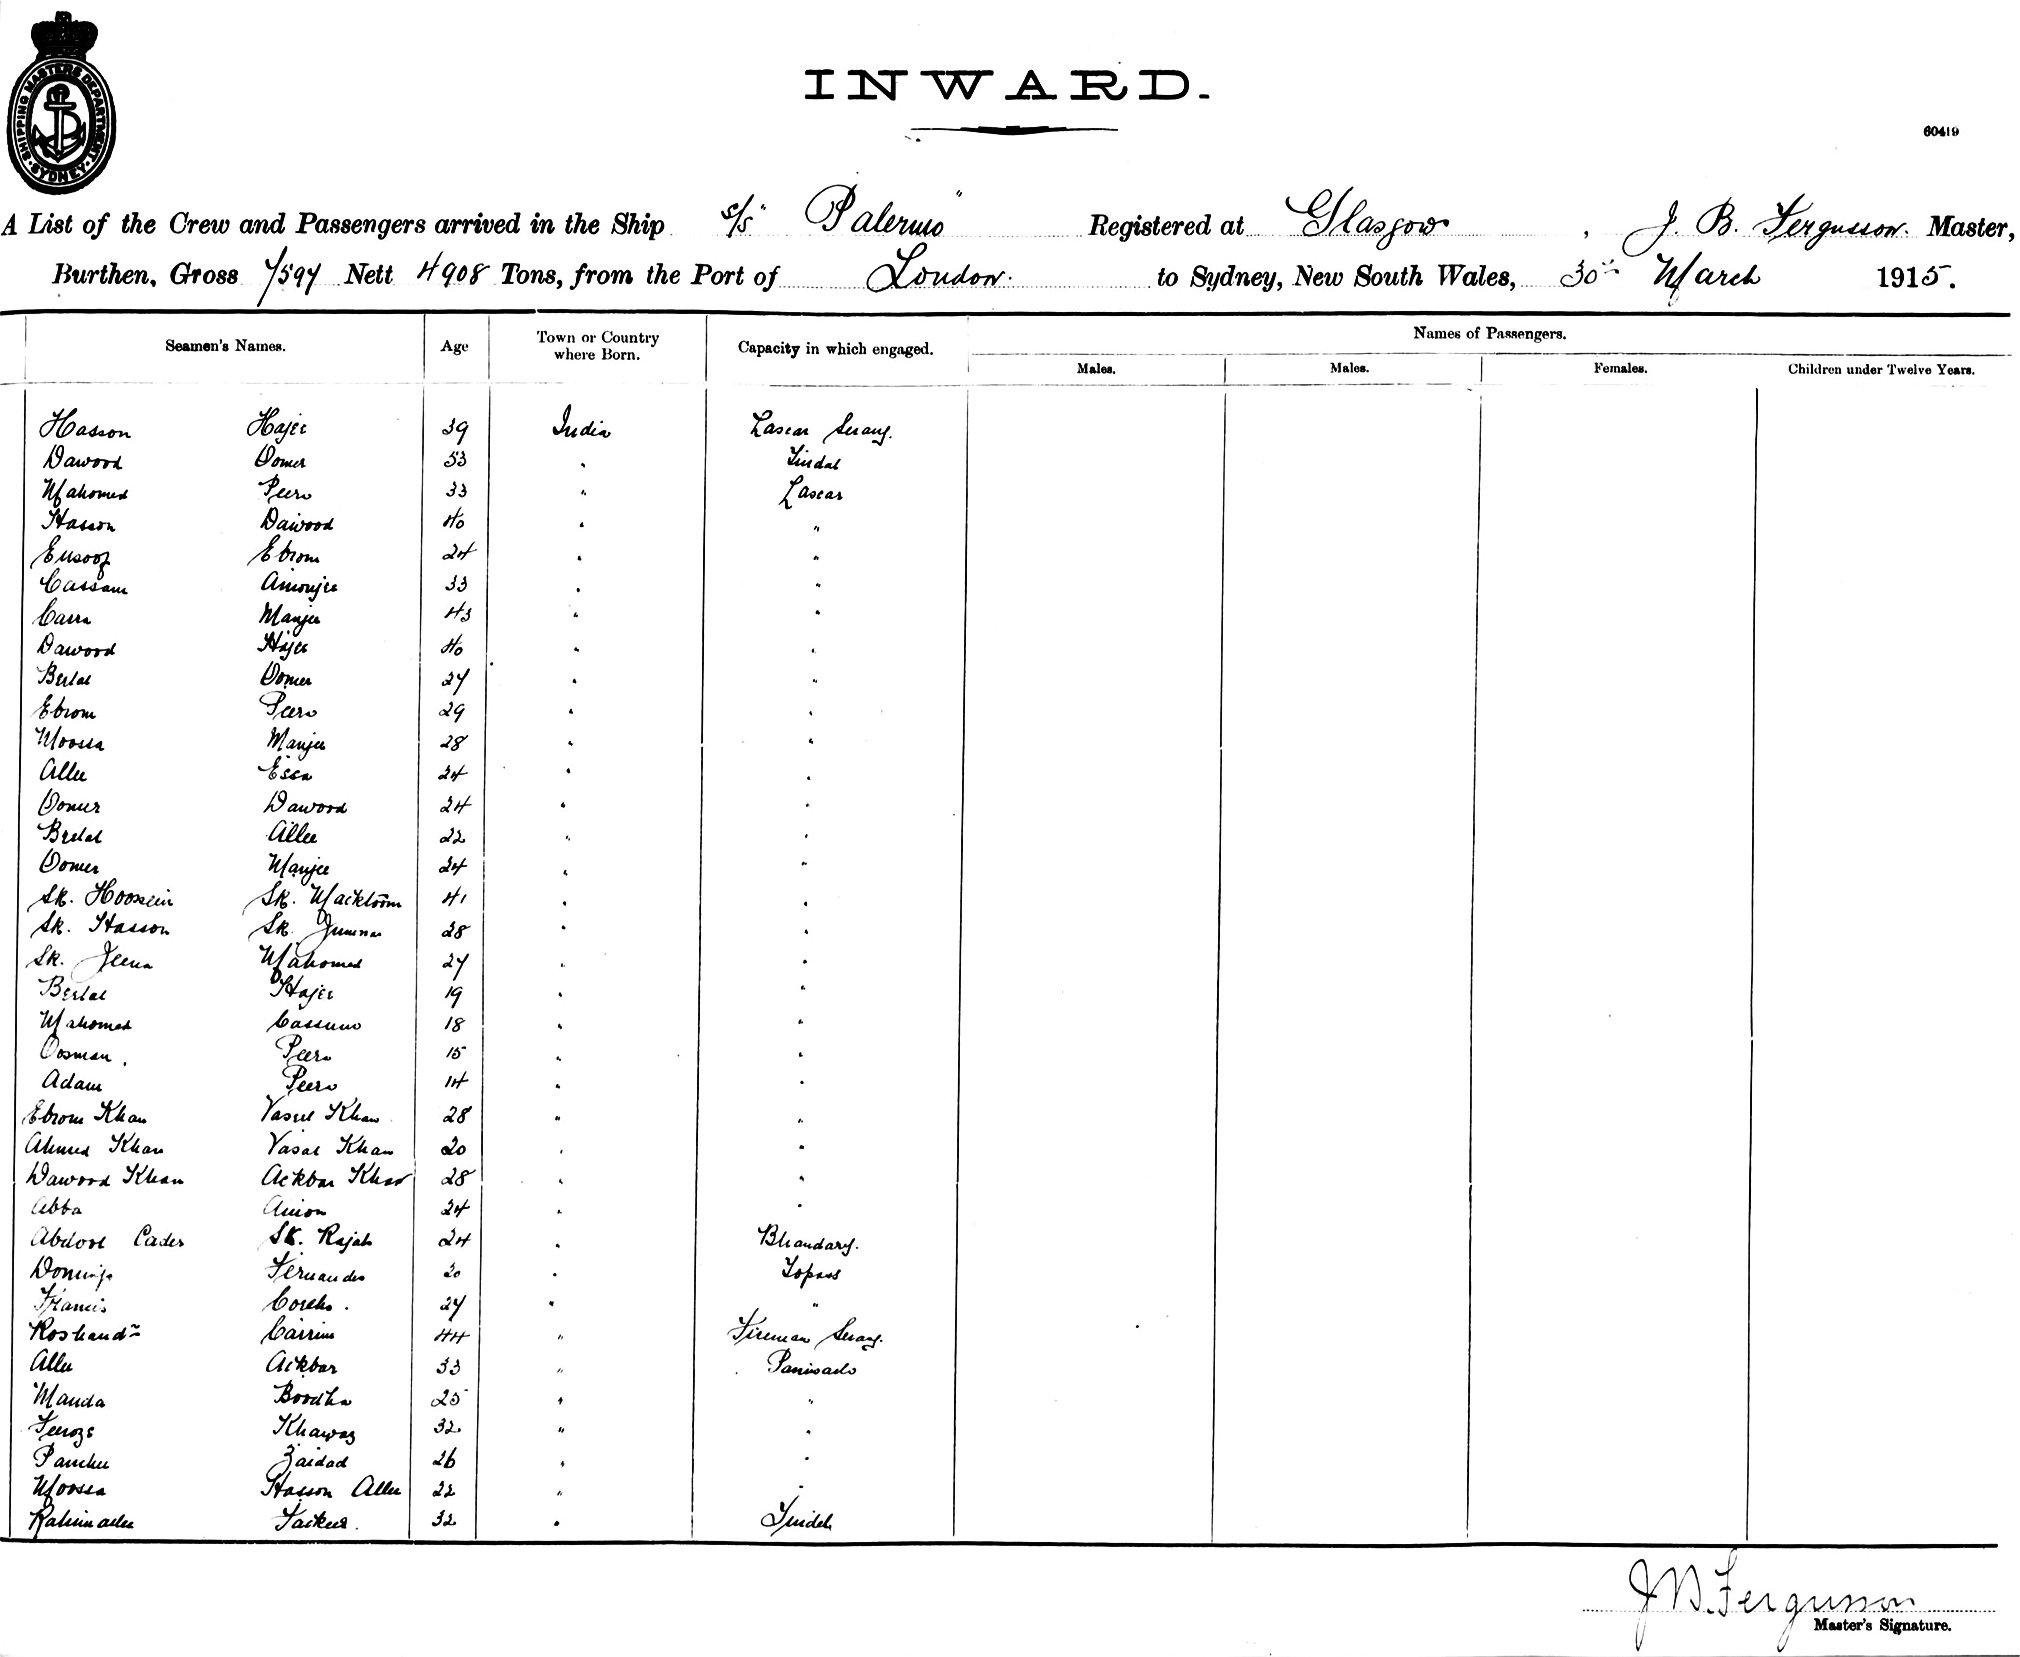 SHIPPING MASTERS DEPARTMENT · SYDNEY ·
INWARD.
60419
A List of the Crew and Passengers arrived in the Ship s/s "Palermo" Registered at Glasgow, J. B. Fergusson. Master,
Burthen, Gross 7597 Nett 4908 Tons, from the Port of London. to Sydney, New South Wales, 30th March 1915.
Seamen's Names. Age Town or Country where Born. Capacity in which engaged. Names of Passengers.
Males. Males. Females. Children under Twelve Years.
Hasson Hajee 39 India Lascar Serang.
Dawood Oomer 53 " Tindal
Mahomed Peero 33 " Lascar
Hasson Dawood 40 " "
Eusoof Ebrom 24 " "
Cassam Amonjee 33 " "
Carra Manjee 43 " "
Dawood Hajee 40 " "
Bellal Oomer 27 " "
Ebrom Peero 29 " "
Moossa Manjee 28 " "
Allee Essa 24 " "
Oomer Dawood 24 " "
Bellal Allee 22 " "
Oomer Manjee 24 " "
Sk. Hoossein Sk. Macktoom 41 " "
Sk. Hasson Sk. Jumma 28 " "
Sk. Jeena Mahomed 27 " "
Bellal Hajee 19 " "
Mahomed Cassum 18 " "
Oosman. Peero 15 " "
Adam Peero 14 " "
Ebrom Khan Vasul Khan 28 " "
Ahmed Khan Vasal Khan 20 " "
Dawood Khan Ackbar Khan 28 " "
Abba Amon 24 " "
Abdool Cader Sk. Rajab 24 " Bhandary.
Domingo Fernandes 20 " Topass
Francis Coelho. 27 " "
Roshand Carrim 44 " Fireman Serang.
Allee Ackbar 33 " Paniwalo
Manda Boodha 25 " "
Feeroze Khawaz 32 " "
Panchu Zaidad 26 " "
Moossa Hasson Allee 22 " "
Rahimalee Fackeer. 32 " Tindel
J B. Fergusson
Master's Signature.